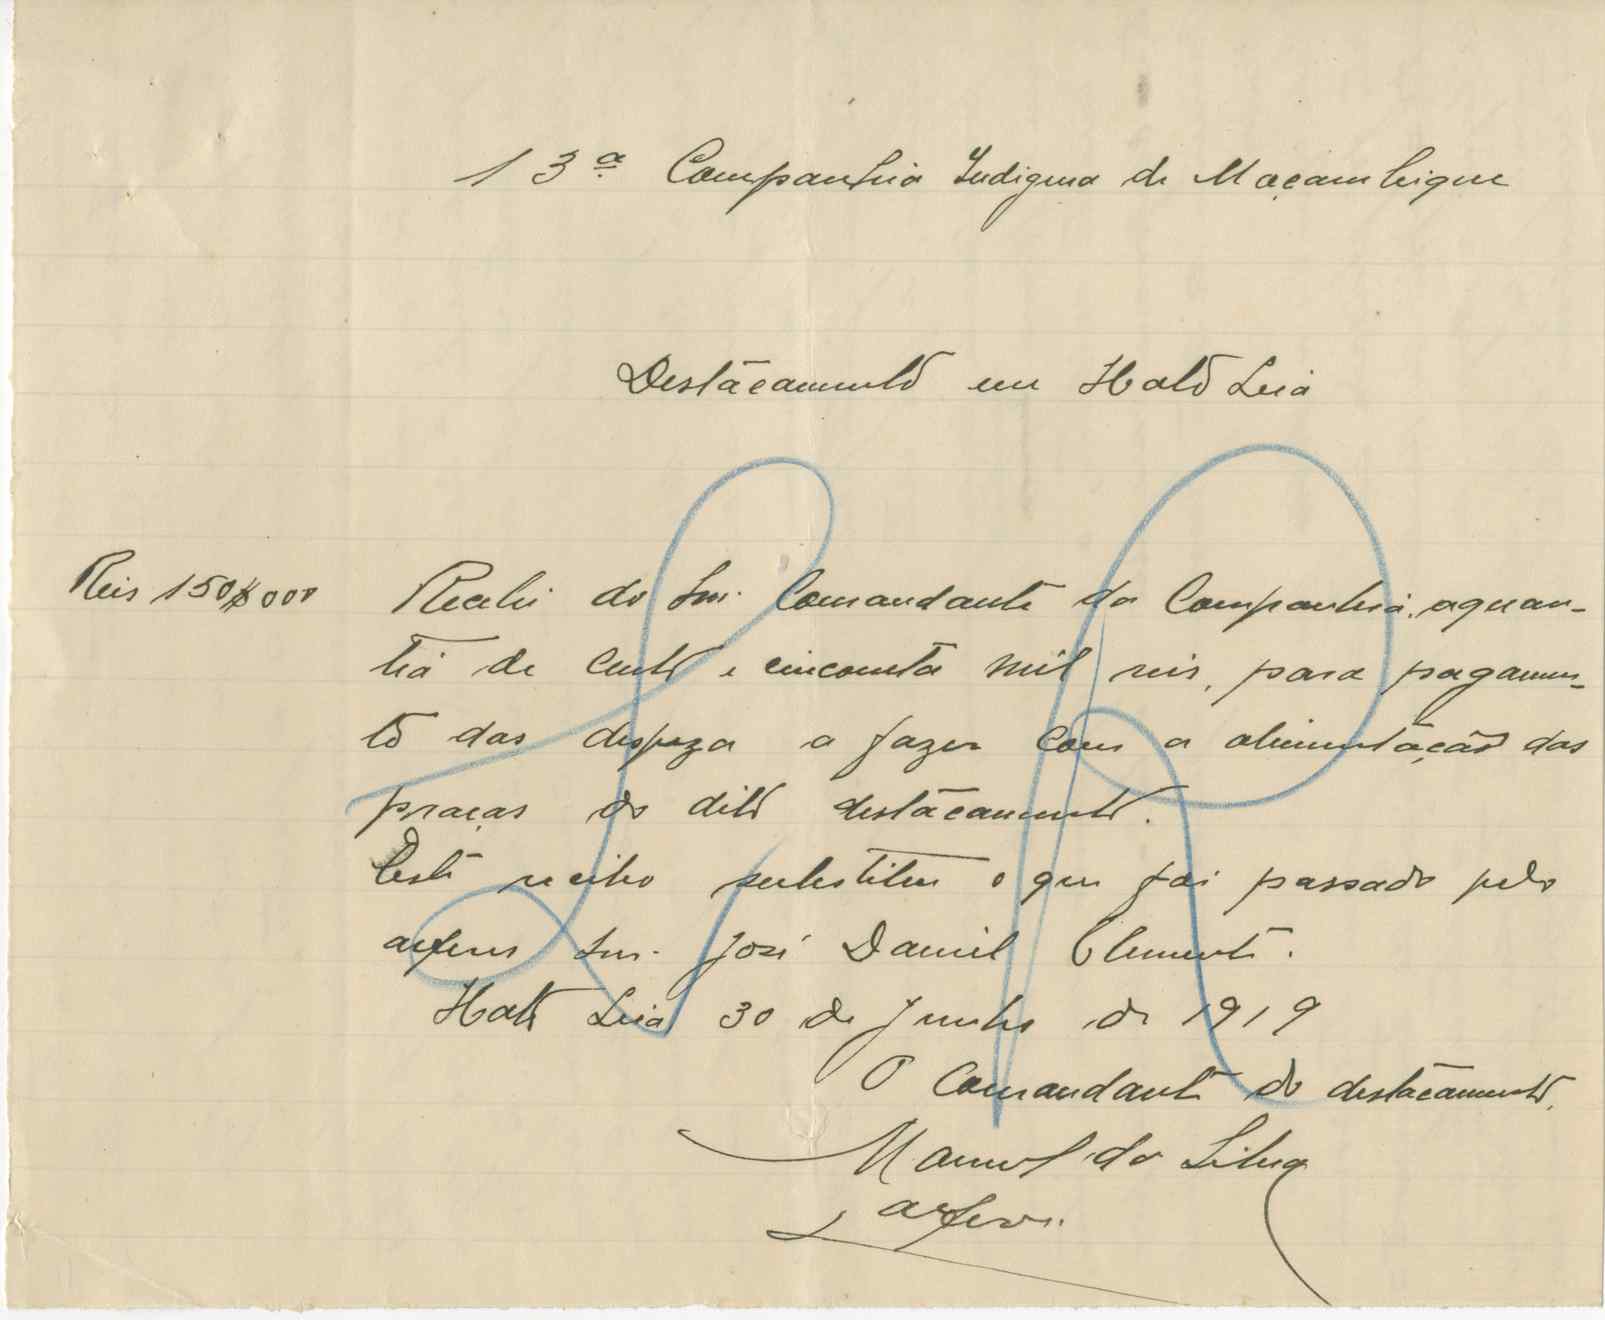 13ª Companhia Indigena de Moçambique
Destacamento em Hato Lia
Reis 150$000
Recebi do Snr. Comandante da Companhia, a quan-
tia de cento e cincoenta mil reis, para pagamen-
to das despeza a fazer com a alimentação das
praças do dito destacamento.
Este recibo substitue o que foi passado pelo
alferes Snr. José Daniel Clemente.
Hato Lia 30 de Junho de 1919
O Comandante do destacamento,
Manuel da Silva
alferes.